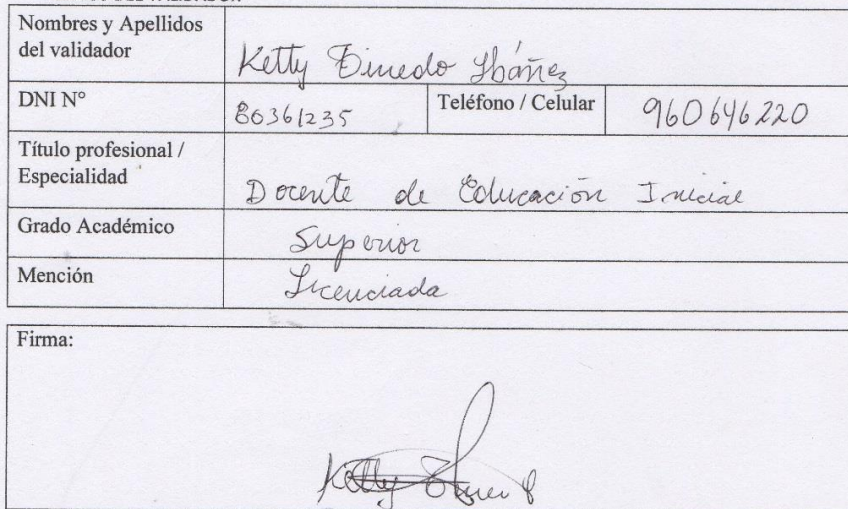 Nombres y Apellidos
del validador
Ketty Ibáñez
DNI N°
80361235
Teléfono / Celular
960646220
Título profesional /
Especialidad
Docente de Educación Inicial
Grado Académico
Superior
Mención
Licenciada
Firma:
Ketty